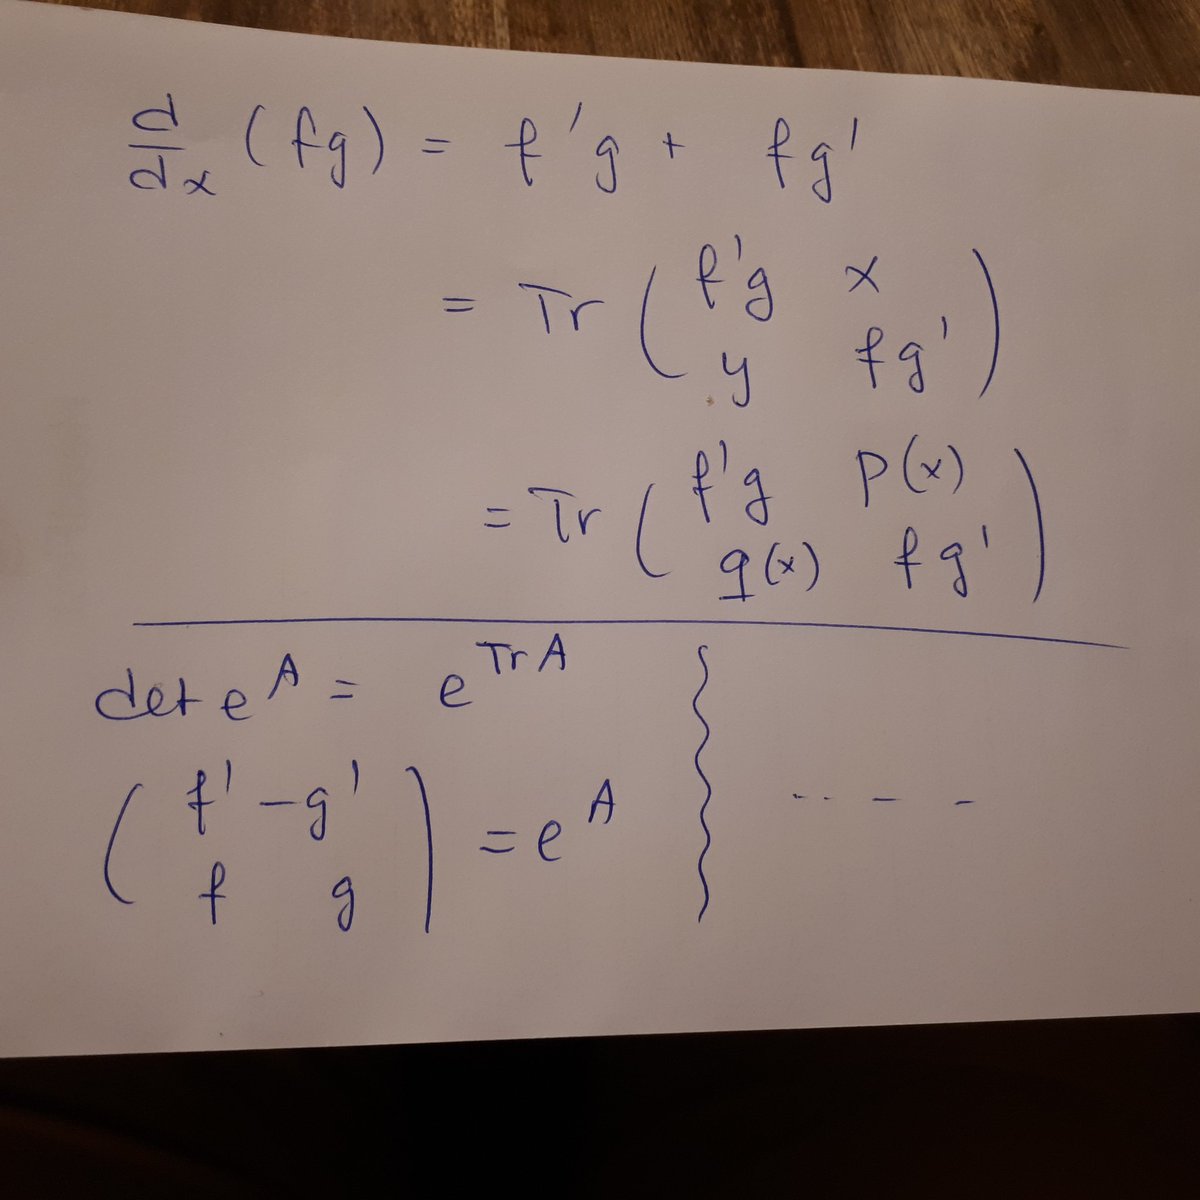 d/dx (fg) = f'g + fg'
= Tr ( f'g x
y fg' )
= Tr ( f'g p(x)
q(x) fg' )
det e^A = e^{Tr A}
( f' -g'
f g ) = e^A
-- - -